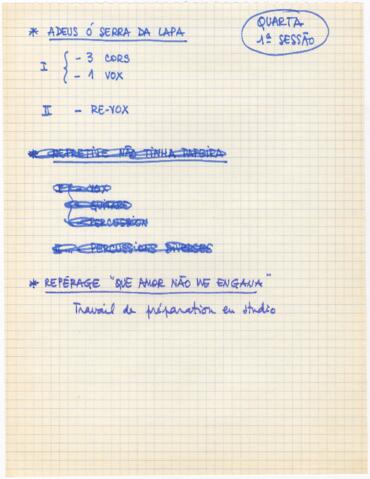 QUARTA
1ª SESSÃO
* ADEUS Ó SERRA DA LAPA
I { - 3 CORS
- 1 VOX
II - RE-VOX
* REFRETIVE NÃO TINHA
- VOX
- GUITARE
- PERCUSSION
- PERCUSSIONS DIVERSES
* REPÉRAGE "QUE AMOR NÃO ME ENGANA"
Travail de préparation en studio